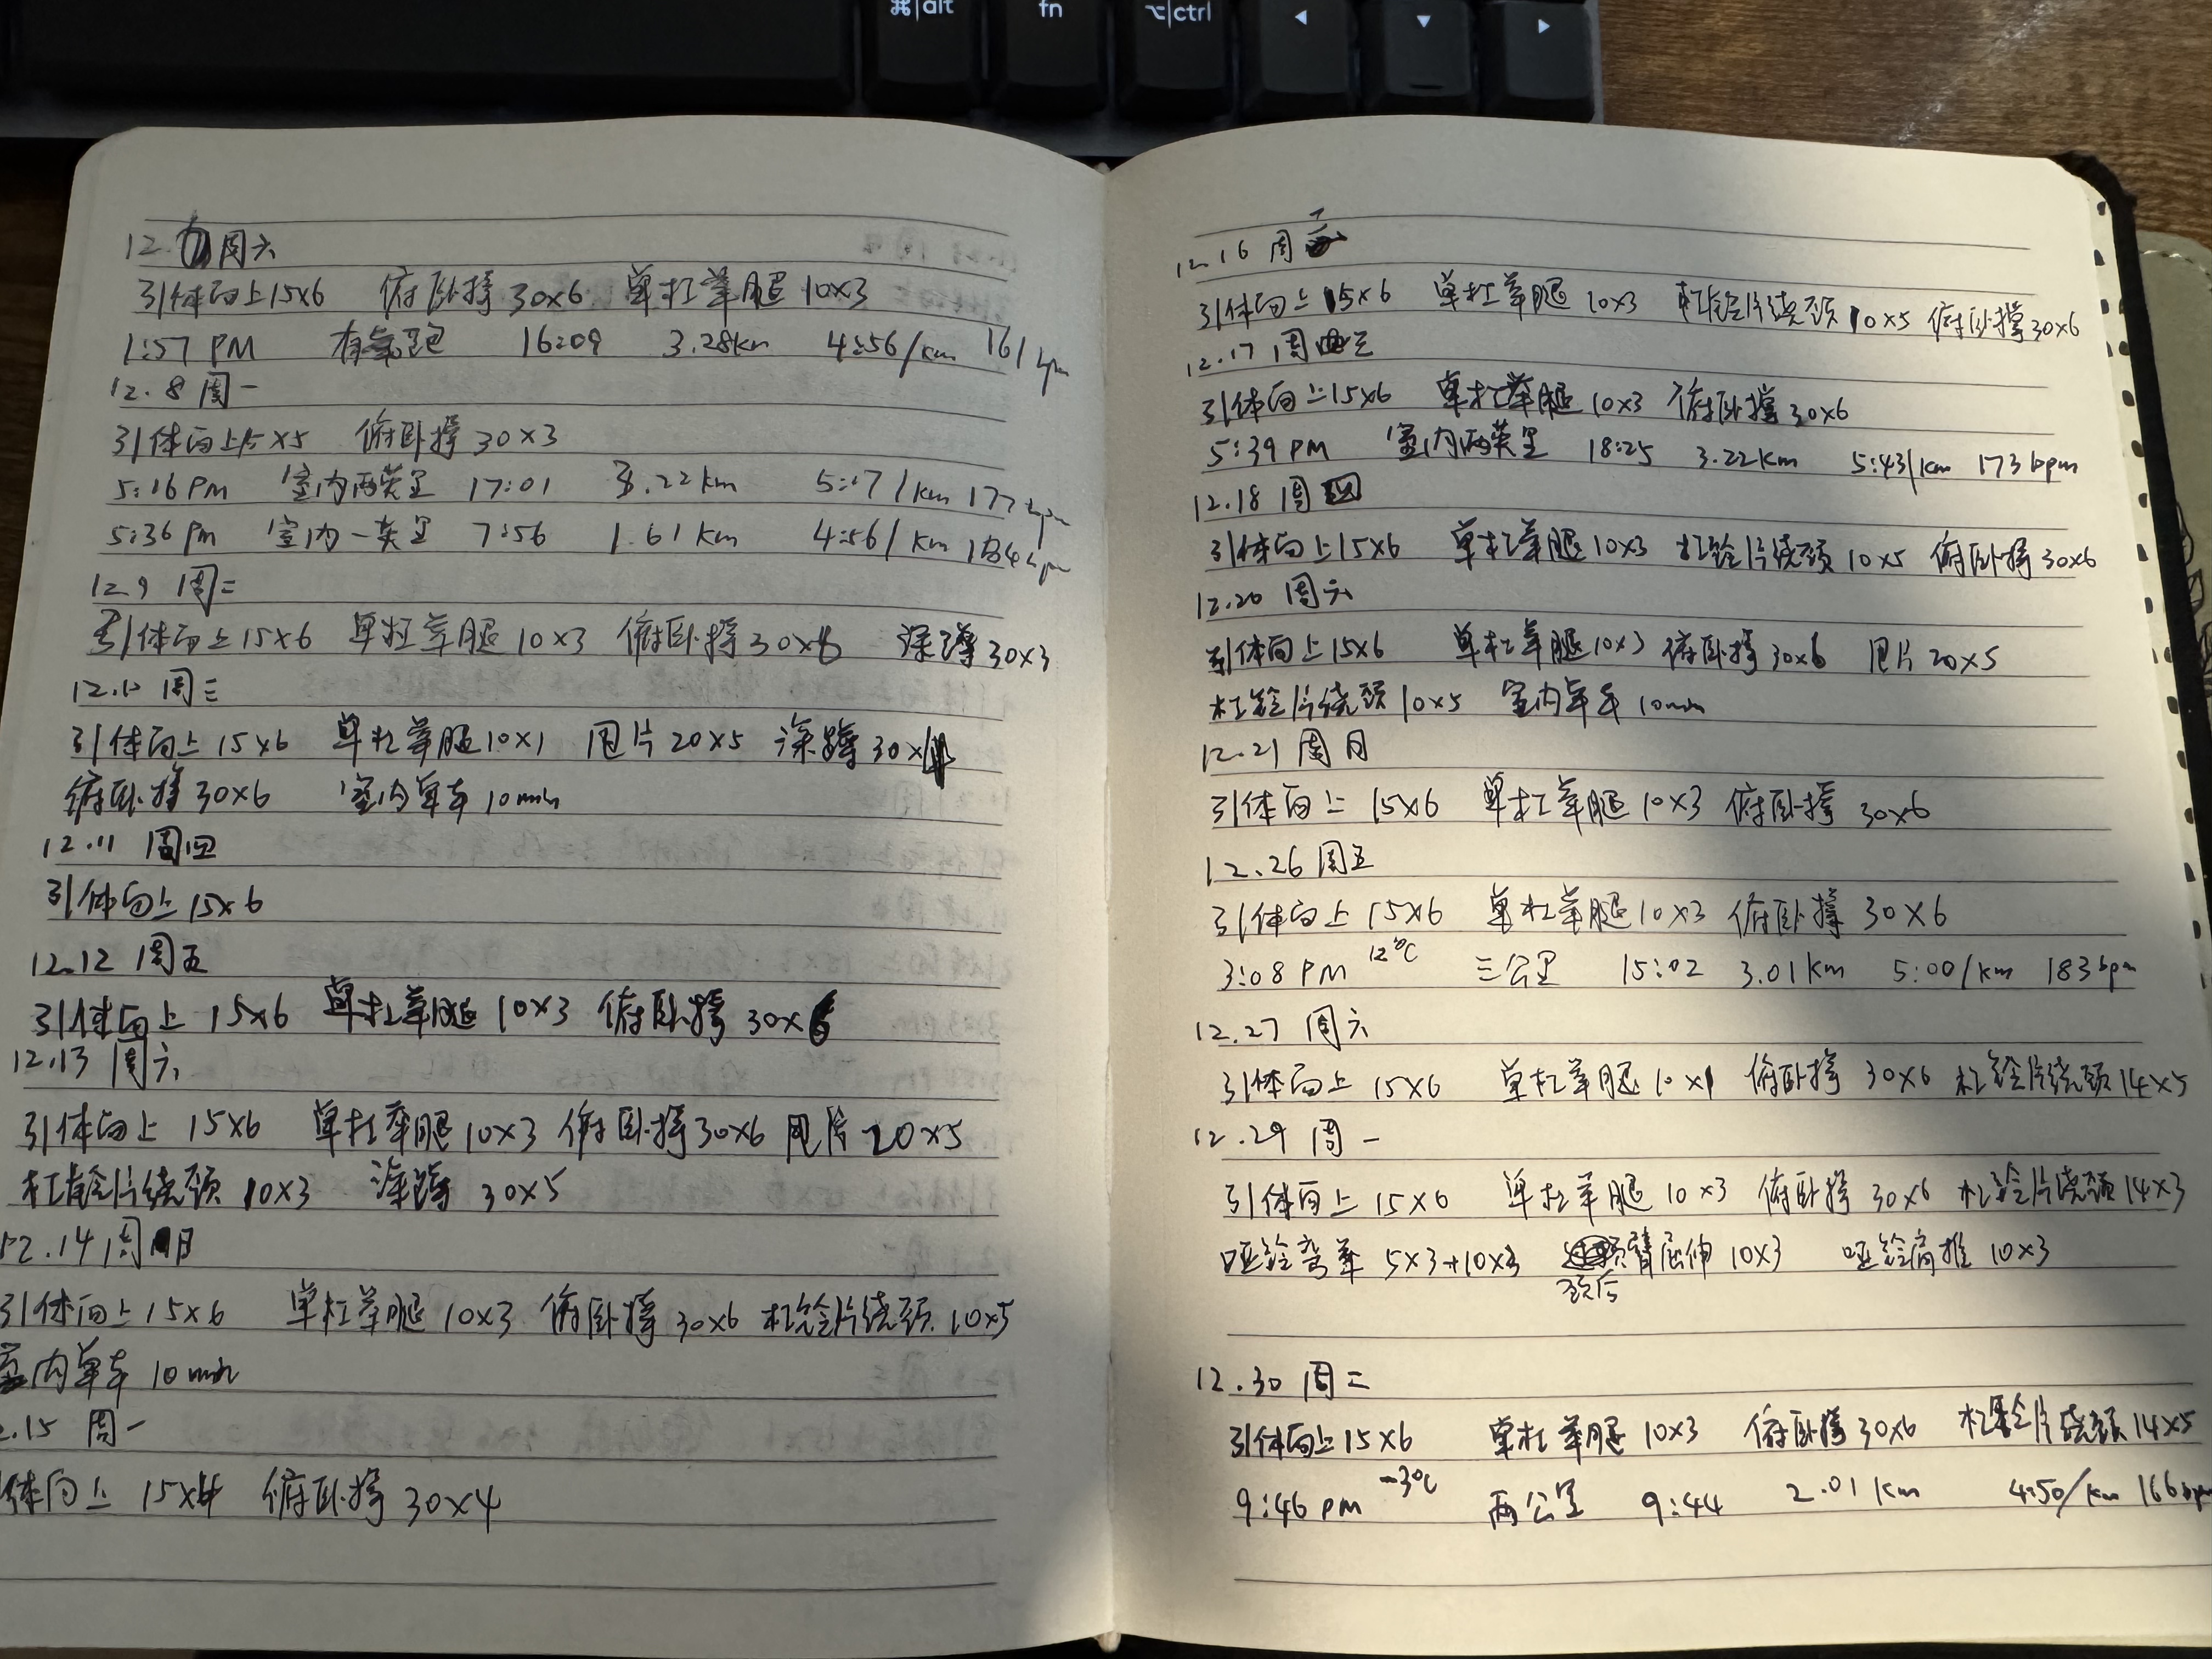 ⌘|alt
fn
⌥|ctrl
12. 周六
引体向上15x6 俯卧撑30x6 单杠举腿10x3
1:57 PM 有氧跑 16:09 3.28km 4:56/km 161bpm
12.8 周一
引体向上15x5 俯卧撑30x3
5:16PM 室内两英里 17:01 3.22km 5:17/km 177bpm
5:36PM 室内一英里 7:56 1.61km 4:56/km 184bpm
12.9 周二
引体向上15x6 单杠举腿10x3 俯卧撑30x6 深蹲30x3
12.10 周三
引体向上15x6 单杠举腿10x1 甩片20x5 深蹲30x
俯卧撑30x6 室内单车10min
12.11 周四
引体向上15x6
12.12 周五
引体向上15x6 单杠举腿10x3 俯卧撑30x6
12.13 周六
引体向上15x6 单杠举腿10x3 俯卧撑30x6 甩片20x5
杠铃片绕颈10x3 深蹲30x5
12.14周日
引体向上15x6 单杠举腿10x3 俯卧撑30x6 杠铃片绕颈10x5
室内单车10min
2.15 周一
体向上15x4 俯卧撑30x4
12.16 周二
引体向上15x6 单杠举腿10x3 杠铃片绕颈10x5 俯卧撑30x6
12.17 周三
引体向上15x6 单杠举腿10x3 俯卧撑30x6
5:39PM 室内两英里 18:25 3.22km 5:43/km 173bpm
12.18 周四
引体向上15x6 单杠举腿10x3 杠铃片绕颈10x5 俯卧撑30x6
12.20 周六
引体向上15x6 单杠举腿10x3 俯卧撑30x6 甩片20x5
杠铃片绕颈10x5 室内单车10min
12.21 周日
引体向上15x6 单杠举腿10x3 俯卧撑30x6
12.26 周五
引体向上15x6 单杠举腿10x3 俯卧撑30x6
3:08PM 12°C 三公里 15:02 3.01km 5:00/km 183bpm
12.27 周六
引体向上15x6 单杠举腿10x1 俯卧撑30x6 杠铃片绕颈14x5
12.29 周一
引体向上15x6 单杠举腿10x3 俯卧撑30x6 杠铃片绕颈14x3
哑铃弯举5x3+10x3 颈后臂屈伸10x3 哑铃肩推10x3
12.30 周二
引体向上15x6 单杠举腿10x3 俯卧撑30x6 杠铃片绕颈14x5
9:46pm -3°C 两公里 9:44 2.01km 4:50/km 166bpm